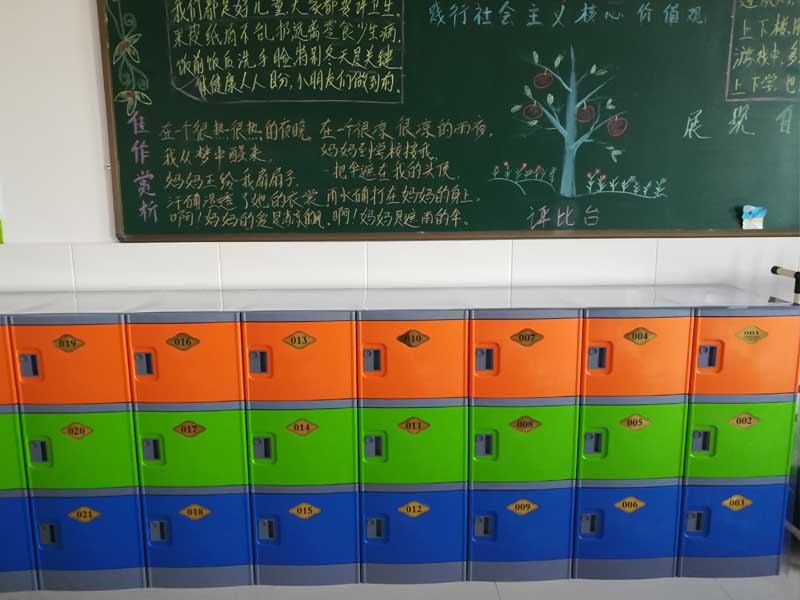 我们都是好儿童大家都要讲卫生.
果皮纸屑不乱扔沉菌零食少生病.
饭前饭后洗手脸特别冬天是关键
保健康人人自分,小朋友们做到有.
践行社会主义核心价值观
上下楼
游戏中,多
上下学,也
佳作赏析
在一个很热很热的夜晚,
我从梦中醒来,
妈妈正给我扇扇子,
汗水湿透了她的衣裳,
啊!妈妈的爱是凉爽的风.
在一个很凉很凉的雨夜,
妈妈到学校接我,
一把伞遮在我的头顶,
雨水确打在妈妈的身上,
啊!妈妈是遮雨的伞.
评比台
展现自
019 016 013 010 007 004 001
020 017 014 011 008 005 002
021 018 015 012 009 006 003